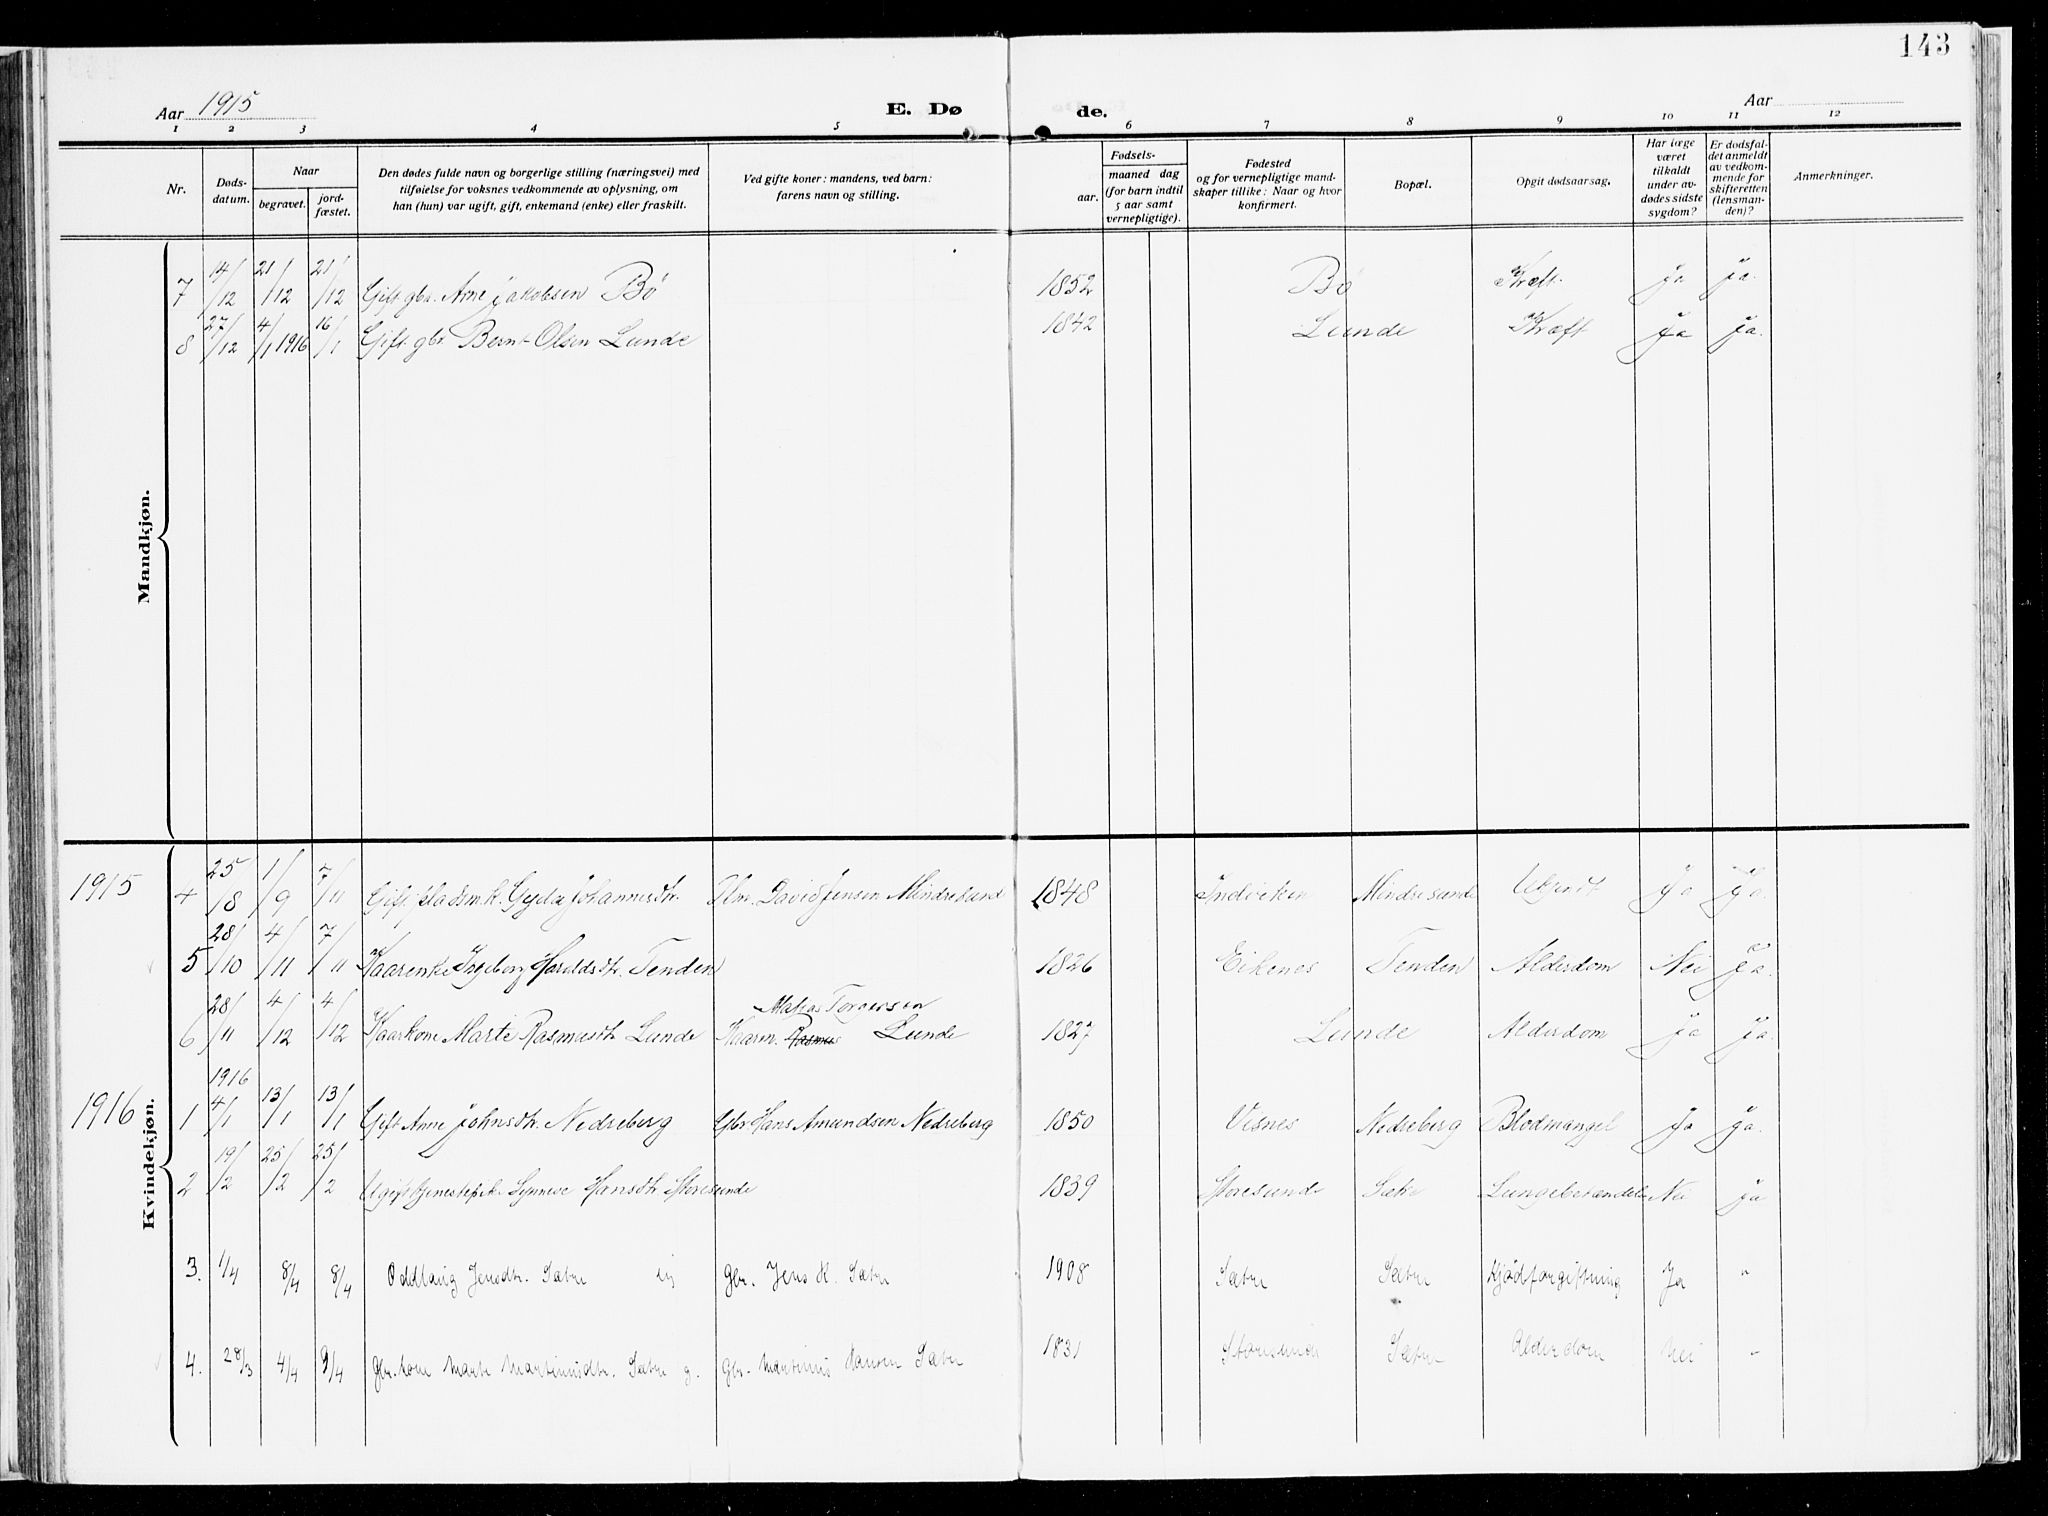 143
Aar 1915
E. Dø
de.
Aar
1 2 3 4 5 6 7 8 9 10 11 12
Nr.
Døds-
datum.
Naar
begravet.
jord-
fæstet.
Den dødes fulde navn og borgerlige stilling (næringsvei) med
tilføielse for voksnes vedkommende av oplysning, om
han (hun) var ugift, gift, enkemand (enke) eller fraskilt.
Ved gifte koner: mandens, ved barn:
farens navn og stilling.
Fødsels-
aar.
maaned dag
(for barn indtil
5 aar samt
vernepligtige).
Fødested
og for vernepligtige mand-
skaper tillike: Naar og hvor
konfirmert.
Bopæl.
Opgit dødsaarsag.
Har læge
været
tilkaldt
under av-
dødes sidste
sygdom?
Er dødsfal-
det anmeldt
av vedkom-
mende for
skifteretten
(lensman-
den)?
Anmerkninger.
Mandkjøn.
7 14/12 21/12 21/12 Gift gbr. Arne Jakobsen Bø 1852 Bø Kræft Ja Ja.
8 27/12 4/1 1916 16/1 Gift gbr Bernt Olsen Lunde 1842 Lunde Kræft Ja Ja.
Kvindekjøn.
1915
4 25/8 1/9 7/11 Gift pladsm.k. Johannesdtr. Plm. David Jensen Mindresund 1848 Indviken Mindresunde Ukjendt Ja Ja.
5 28/10 4/11 7/11 Kaarenke Ingeborg Haraldsdtr. Tenden 1826 Eikenes Tenden Alderdom Nei Ja.
6 28/11 4/12 4/12 Kaarkone Marte Rasmusdtr Lunde Kaarm. Rasmus Matias Lunde 1827 Lunde Alderdom Ja Ja.
1916
1916
1 4/1 13/1 13/1 Gift Anne Johnsdtr. Nedreberg Gbr Hans Amundsen Nedreberg 1850 Visnes Nedreberg Blodmangel Ja Ja.
2 19/2 25/2 25/2 Ugift Synneve Hansdtr Storesunde 1839 Storesunde Sætre Lungebetændelse Nei Ja
3. 1/4 8/4 8/4 Oddlaug Jensdtr. Sætre Gbr. Jens H. Sætre 1908 Sætre Sætre Kjødforgiftning Ja "
4. 28/3 4/4 9/4 Gbr. kone Marte Martinusdtr. Sætre g. Gbr. Martinus Hansen Sætre 1831 Storesunde Sætre Alderdom Nei "